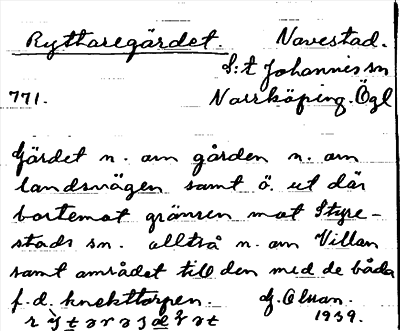 Ryttaregärdet. Navestad.
S:t Johannis sn
771. Norrköping. Ögl
Gärdet n. om gården n. om
landsvägen samt ö. ut där
bortemot gränsen mot Styre-
stads sn. alltså n. om Villan
samt området till den med de båda
f.d. knekttorpen. G. Olson.
1939.